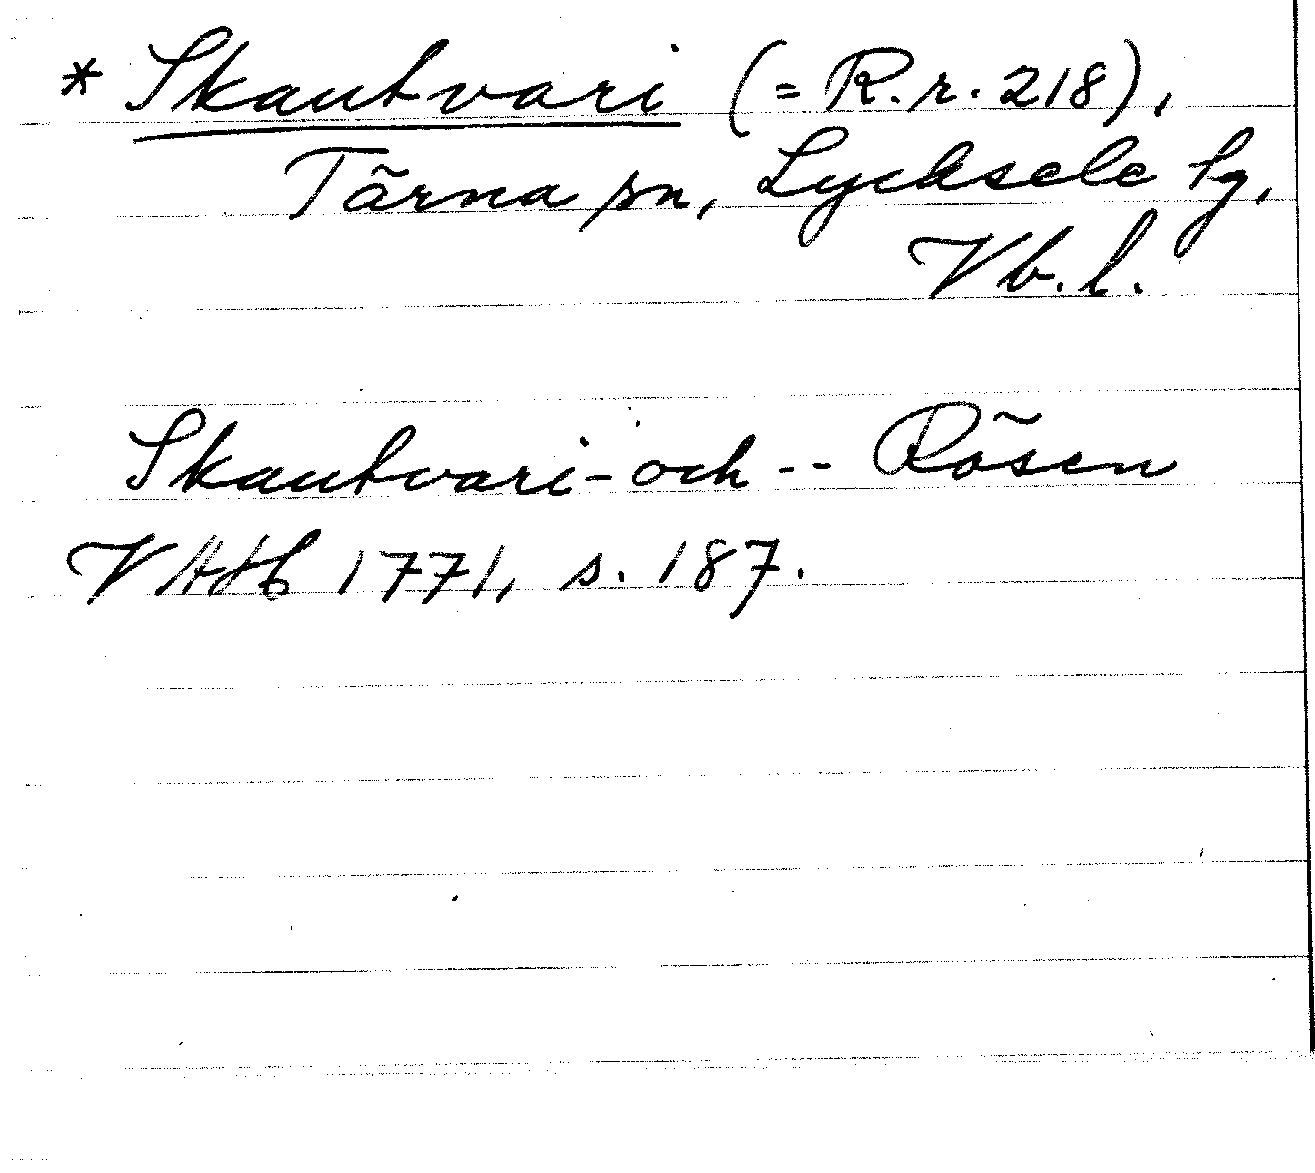 * Skautvari (= R.r. 218),
Tärna sn, Lycksele lg,
Vb.l.
Skautvari- och -- Rösen
VAHb 1771, s. 187.